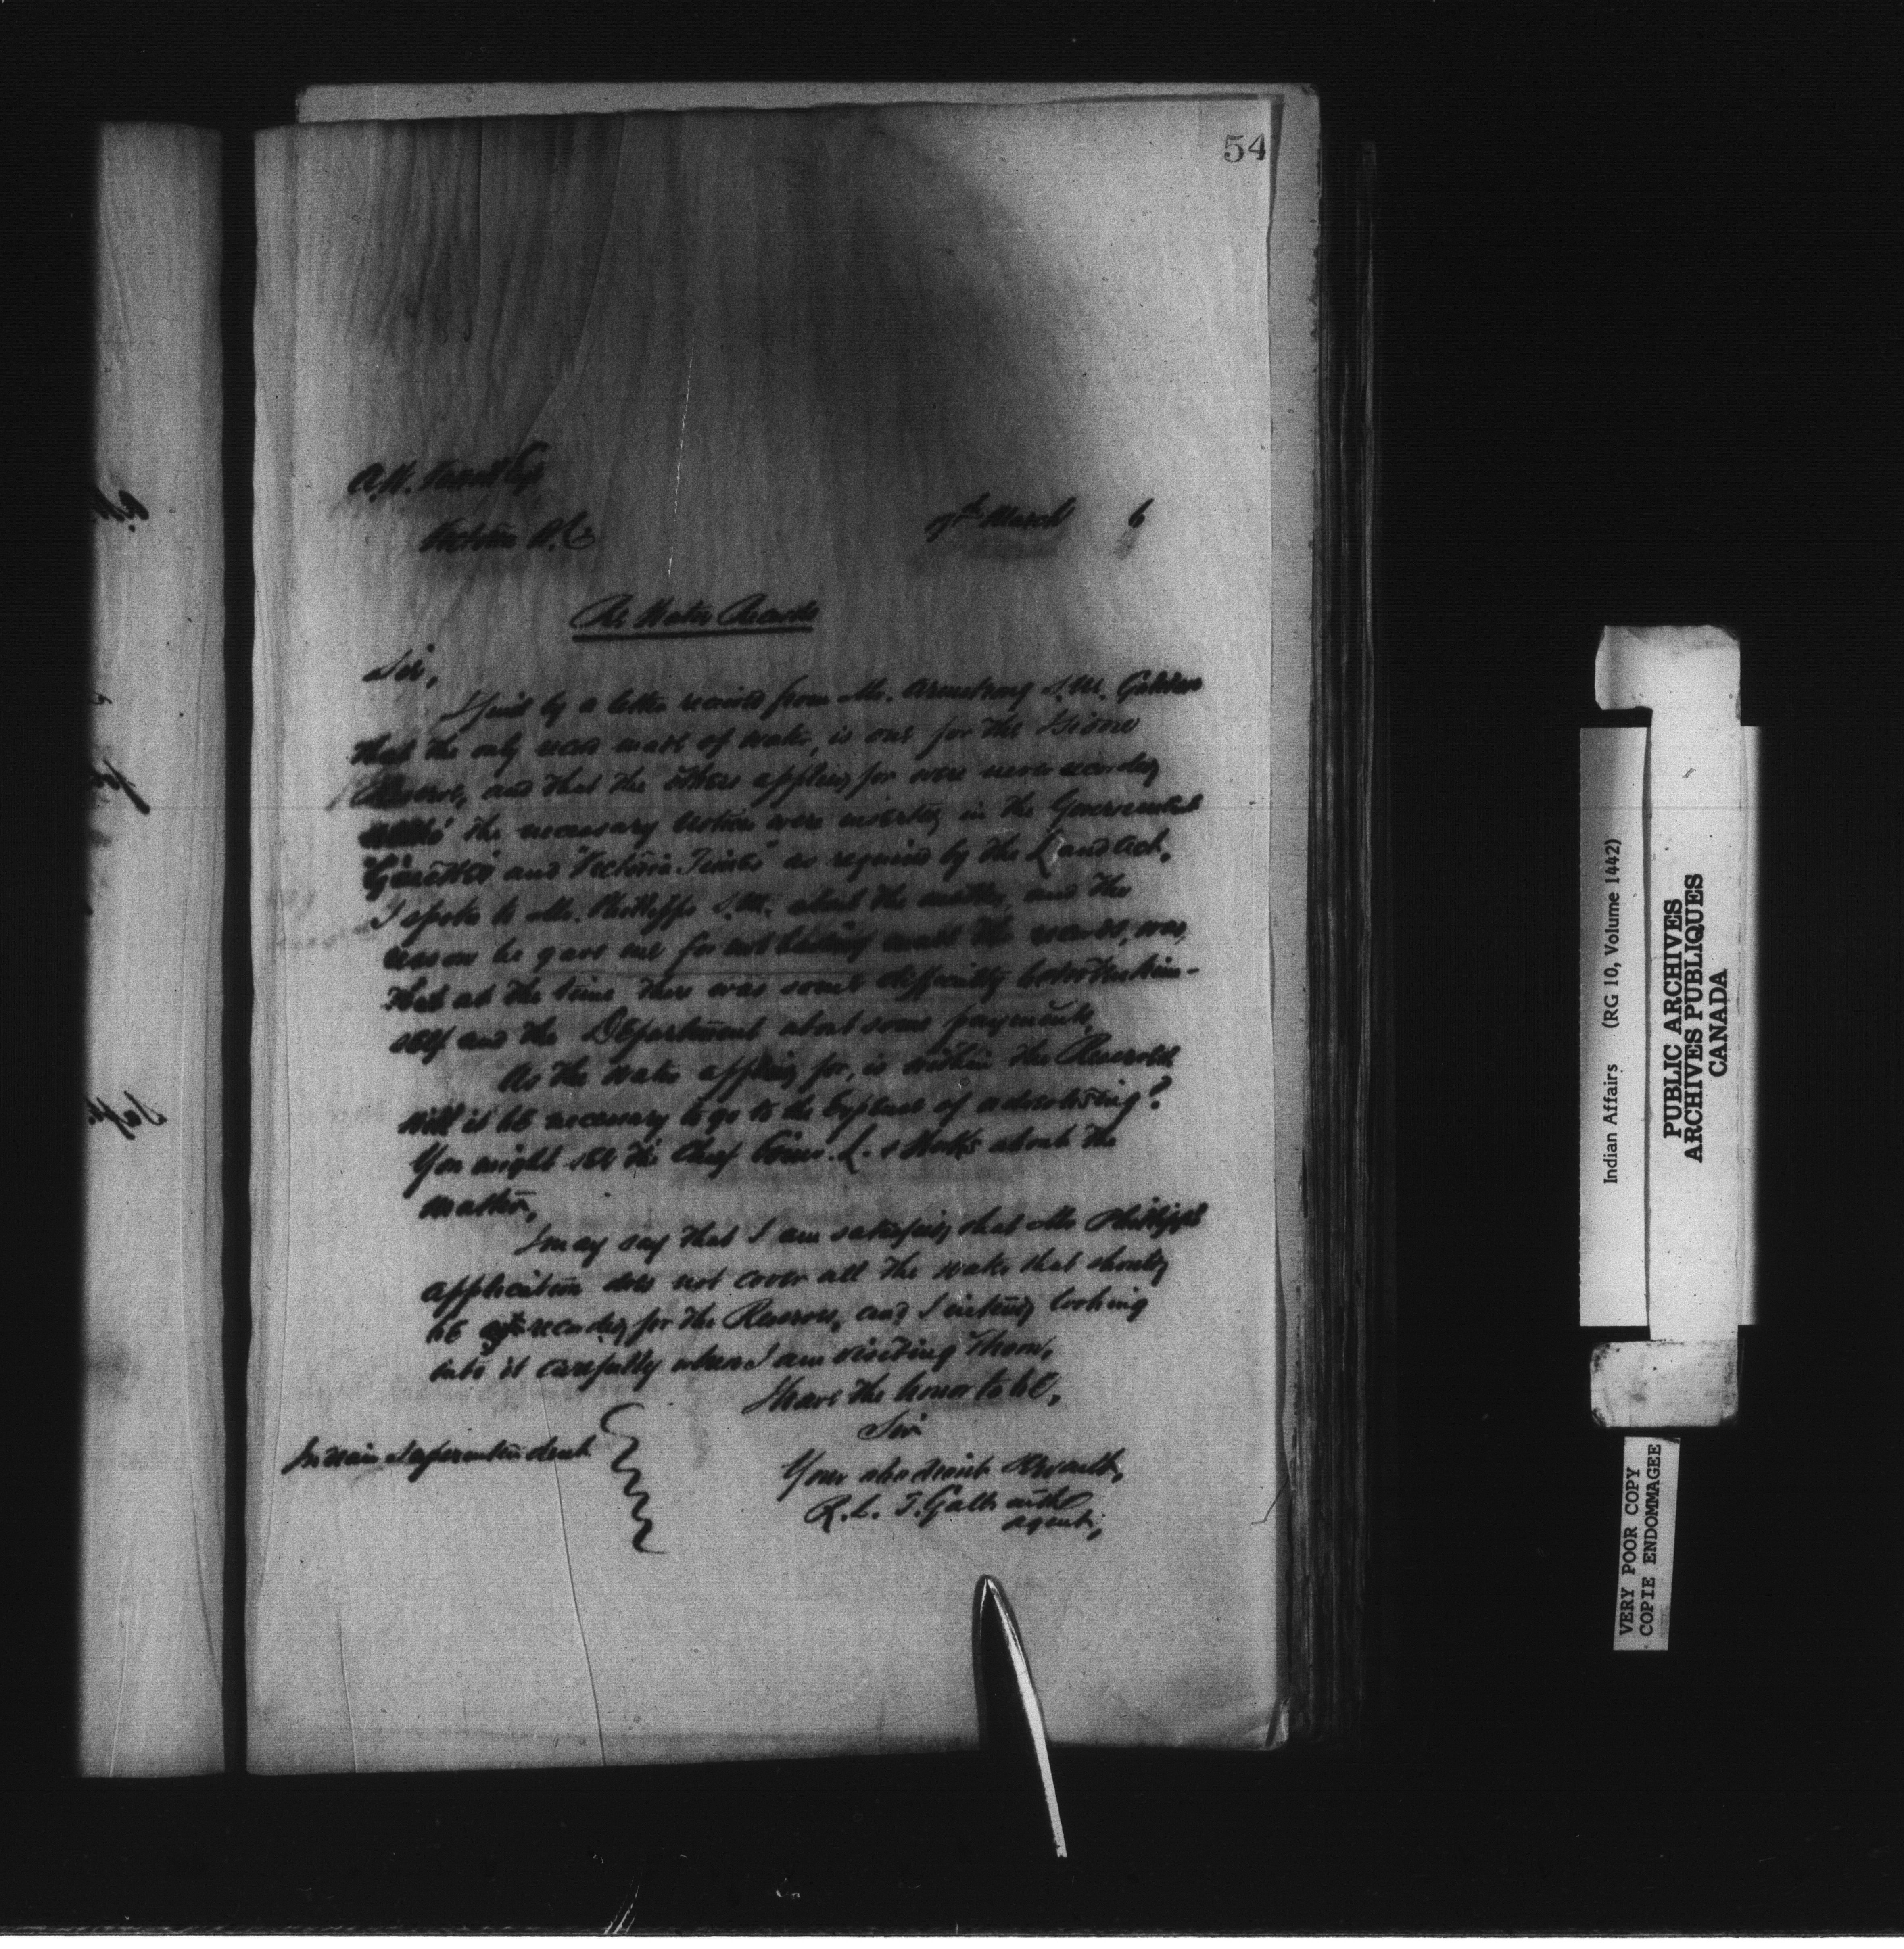 54
A.W. Vowell Esq
Victoria B.C.
7th March 6
Re Water Records
Sir,
I find by a letter received from Mr. Armstrong S.M. Golden
that the only record made of water, is one for the
Reserve, and that the others applied for were never recorded
the necessary notices were inserted in the Government
"Gazette" and "Victoria Times" as required by the Land Act.
I spoke to Mr. Phillipps S.M. about the matter, and the
reason he gave me for not having made the records, was,
that at the time there was some difficulty between him-
self and the Department about some payments.
As the water applied for, is within the Reserves
will it be necessary to go to the expense of advertising?
You might see the Chief Comr. L. & Works about the
matter,
I may say that I am satisfied that Mr Phillipps
application does not cover all the water that should
be recorded for the Reserves, and I intend looking
into it carefully when I am visiting them,
I have the honor to be,
Sir
Your obedient Servant,
R. L. T. Galbraith
agent,
Indian Superintendent
Indian Affairs (RG 10, Volume 1442)
PUBLIC ARCHIVES
ARCHIVES PUBLIQUES
CANADA
VERY POOR COPY
COPIE ENDOMMAGEE